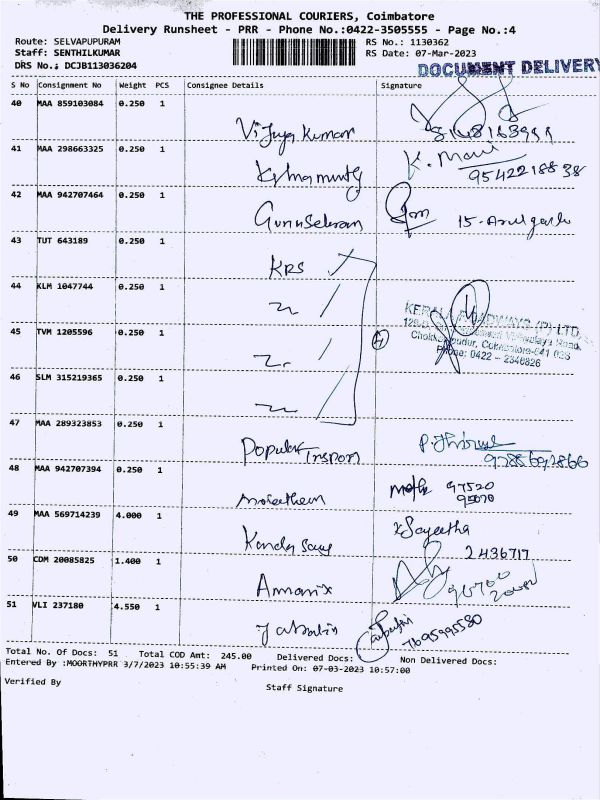 THE PROFESSIONAL COURIERS, Coimbatore
Delivery Runsheet - PRR - Phone No.:0422-3505555 - Page No.:4
Route: SELVAPUPURAM
RS No.: 1130362
Staff: SENTHILKUMAR
RS Date: 07-Mar-2023
DRS No.: DCJB113036204
DOCUMENT DELIVERY
S No Consignment No Weight PCS Consignee Details Signature
40 MAA 859103084 0.250 1
Vijaya Kumar
41 MAA 298663325 0.250 1
K. Mani
9542218838
42 MAA 942707464 0.250 1
Gunasekaran
43 TUT 643189 0.250 1
KRS
44 KLM 1047744 0.250 1
KERALA ROADWAYS (P) LTD.
45 TVM 1205596 0.250 1
4
Phone: 0422 - 2346826
46 SLM 315219365 0.250 1
47 MAA 289323853 0.250 1
Popular
48 MAA 942707394 0.250 1
97520
49 MAA 569714239 4.000 1
Sageetha
2436717
Kanda Samy
50 CDM 20085825 1.400 1
Amarix
51 VLI 237180 4.550 1
7695995580
Total No. Of Docs: 51 Total COD Amt: 245.00 Delivered Docs: Non Delivered Docs:
Entered By :MOORTHYPRR 3/7/2023 10:55:39 AM Printed On: 07-03-2023 10:57:00
Verified By
Staff Signature